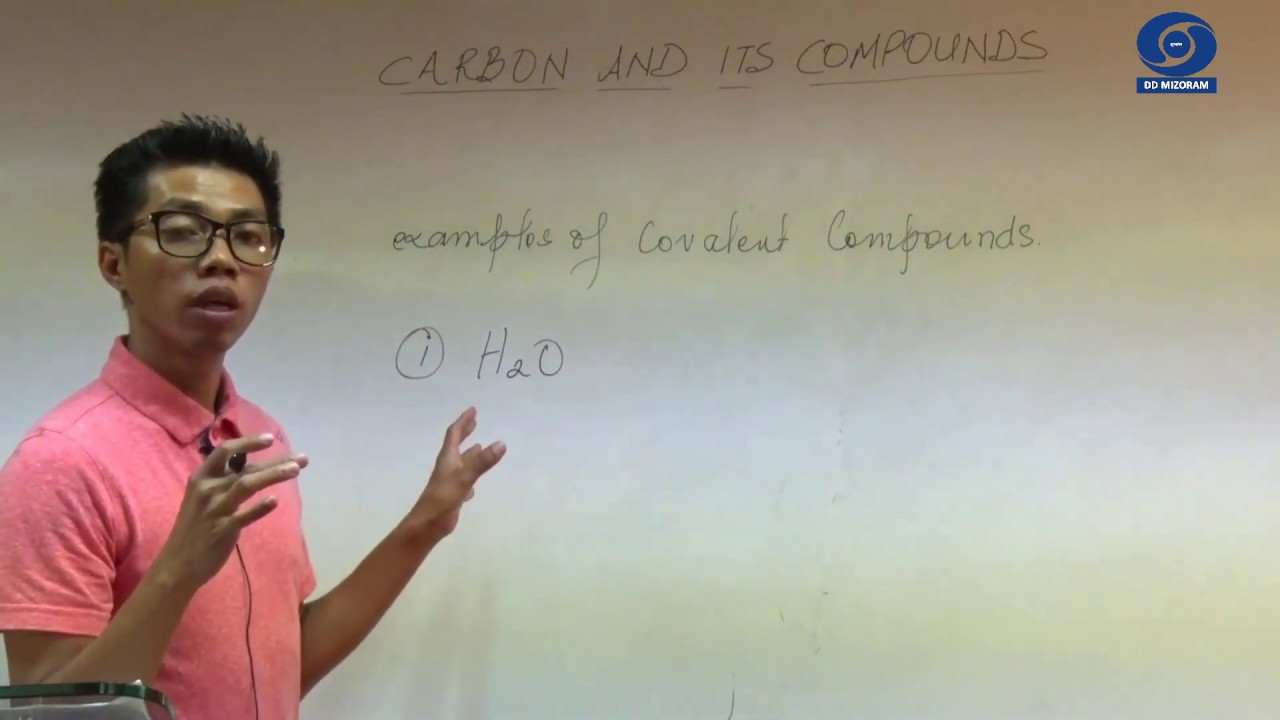 CARBON AND ITS COMPOUNDS
DD MIZORAM
examples of Covalent Compounds.
① H₂O